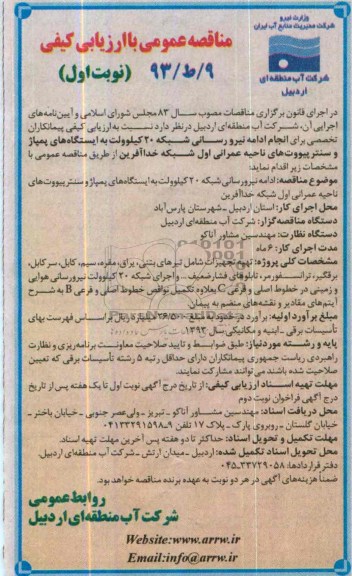 وزارت نیرو
شرکت مدیریت منابع آب ایران
شرکت آب منطقه ای
اردبیل
مناقصه عمومی با ارزیابی کیفی
۹/ط/۹۳ (نوبت اول)
در اجرای قانون برگزاری مناقصات مصوب سال ۸۳ مجلس شورای اسلامی و آیین‌نامه‌های
اجرایی آن، شرکت آب منطقه‌ای اردبیل در نظر دارد نسبت به ارزیابی کیفی پیمانکاران
تخصصی برای انجام ادامه نیرو رسانی شبکه ۲۰ کیلوولت به ایستگاه‌های پمپاژ
و سنتر پیووت‌های ناحیه عمرانی اول شبکه خداآفرین از طریق مناقصه عمومی با
مشخصات زیر اقدام نماید:
موضوع مناقصه: ادامه نیرورسانی شبکه ۲۰ کیلوولت به ایستگاه‌های پمپاژ و سنتر پیووت‌های
ناحیه عمرانی اول شبکه خداآفرین
محل اجرای کار: استان اردبیل - شهرستان پارس‌آباد
دستگاه مناقصه گزار: شرکت آب منطقه‌ای اردبیل
دستگاه نظارت: مهندسین مشاور آتاکو
مدت اجرای کار: ۶ ماه
مشخصات کلی پروژه: تهیه تجهیزات شامل تیرهای بتنی، یراق، مقره، سیم، کابل، سرکابل،
برقگیر، ترانسفورمر، تابلوهای فشار ضعیف و اجرای شبکه ۲۰ کیلوولت نیرورسانی هوایی
و زمینی در خطوط اصلی و فرعی C بعلاوه تکمیل نواقص خطوط اصلی و فرعی B به شرح
آیتم‌های مقادیر و نقشه‌های منضم به پیمان
مبلغ برآورد اولیه: برآورد در حدود به مبلغ ۲۶/۵۰۰ میلیارد ریال بر اساس فهرست بهای
تأسیسات برقی - ابنیه و مکانیکی سال ۱۳۹۳.
پایه و رشته مورد نیاز: طبق ضوابط و تایید صلاحیت معاونت برنامه‌ریزی و نظارت
راهبردی ریاست جمهوری پیمانکاران دارای حداقل رتبه ۵ رشته تأسیسات برقی که تعیین
صلاحیت شده باشند می توانند مشارکت نمایند.
مهلت تهیه اسناد ارزیابی کیفی: از تاریخ درج آگهی نوبت اول تا یک هفته پس از تاریخ
درج آگهی فراخوان نوبت دوم
محل دریافت اسناد: مهندسین مشاور آتاکو - تبریز - ولی‌عصر جنوبی - خیابان باختر -
خیابان گلستان - روبروی پارک - پلاک ۱۷ تلفن ۹-۰۴۱۳۳۲۹۱۵۹۸
مهلت تکمیل و تحویل اسناد: حداکثر تا دو هفته پس از آخرین مهلت تهیه اسناد.
محل تحویل اسناد تکمیل شده: اردبیل - میدان ارتش - شرکت آب منطقه‌ای اردبیل
دفتر قراردادها: ۳۳۷۲۹۰۵۸-۰۴۵
ضمناً هزینه‌های آگهی در هر دو نوبت به عهده برنده مناقصه خواهد بود.
روابط عمومی
شرکت آب منطقه‌ای اردبیل
Website:www.arrw.ir
Email:info@arrw.ir